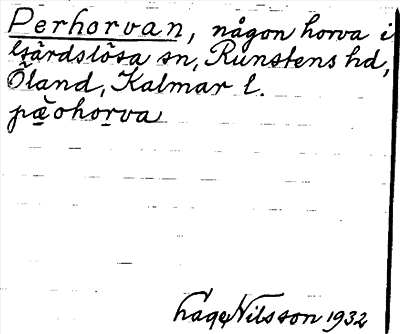 Perhorvan, någon horva i
Gärdslösa sn, Runstens hd,
Öland, Kalmar l.
pæ̱ohorva
Åage Nilsson 1932